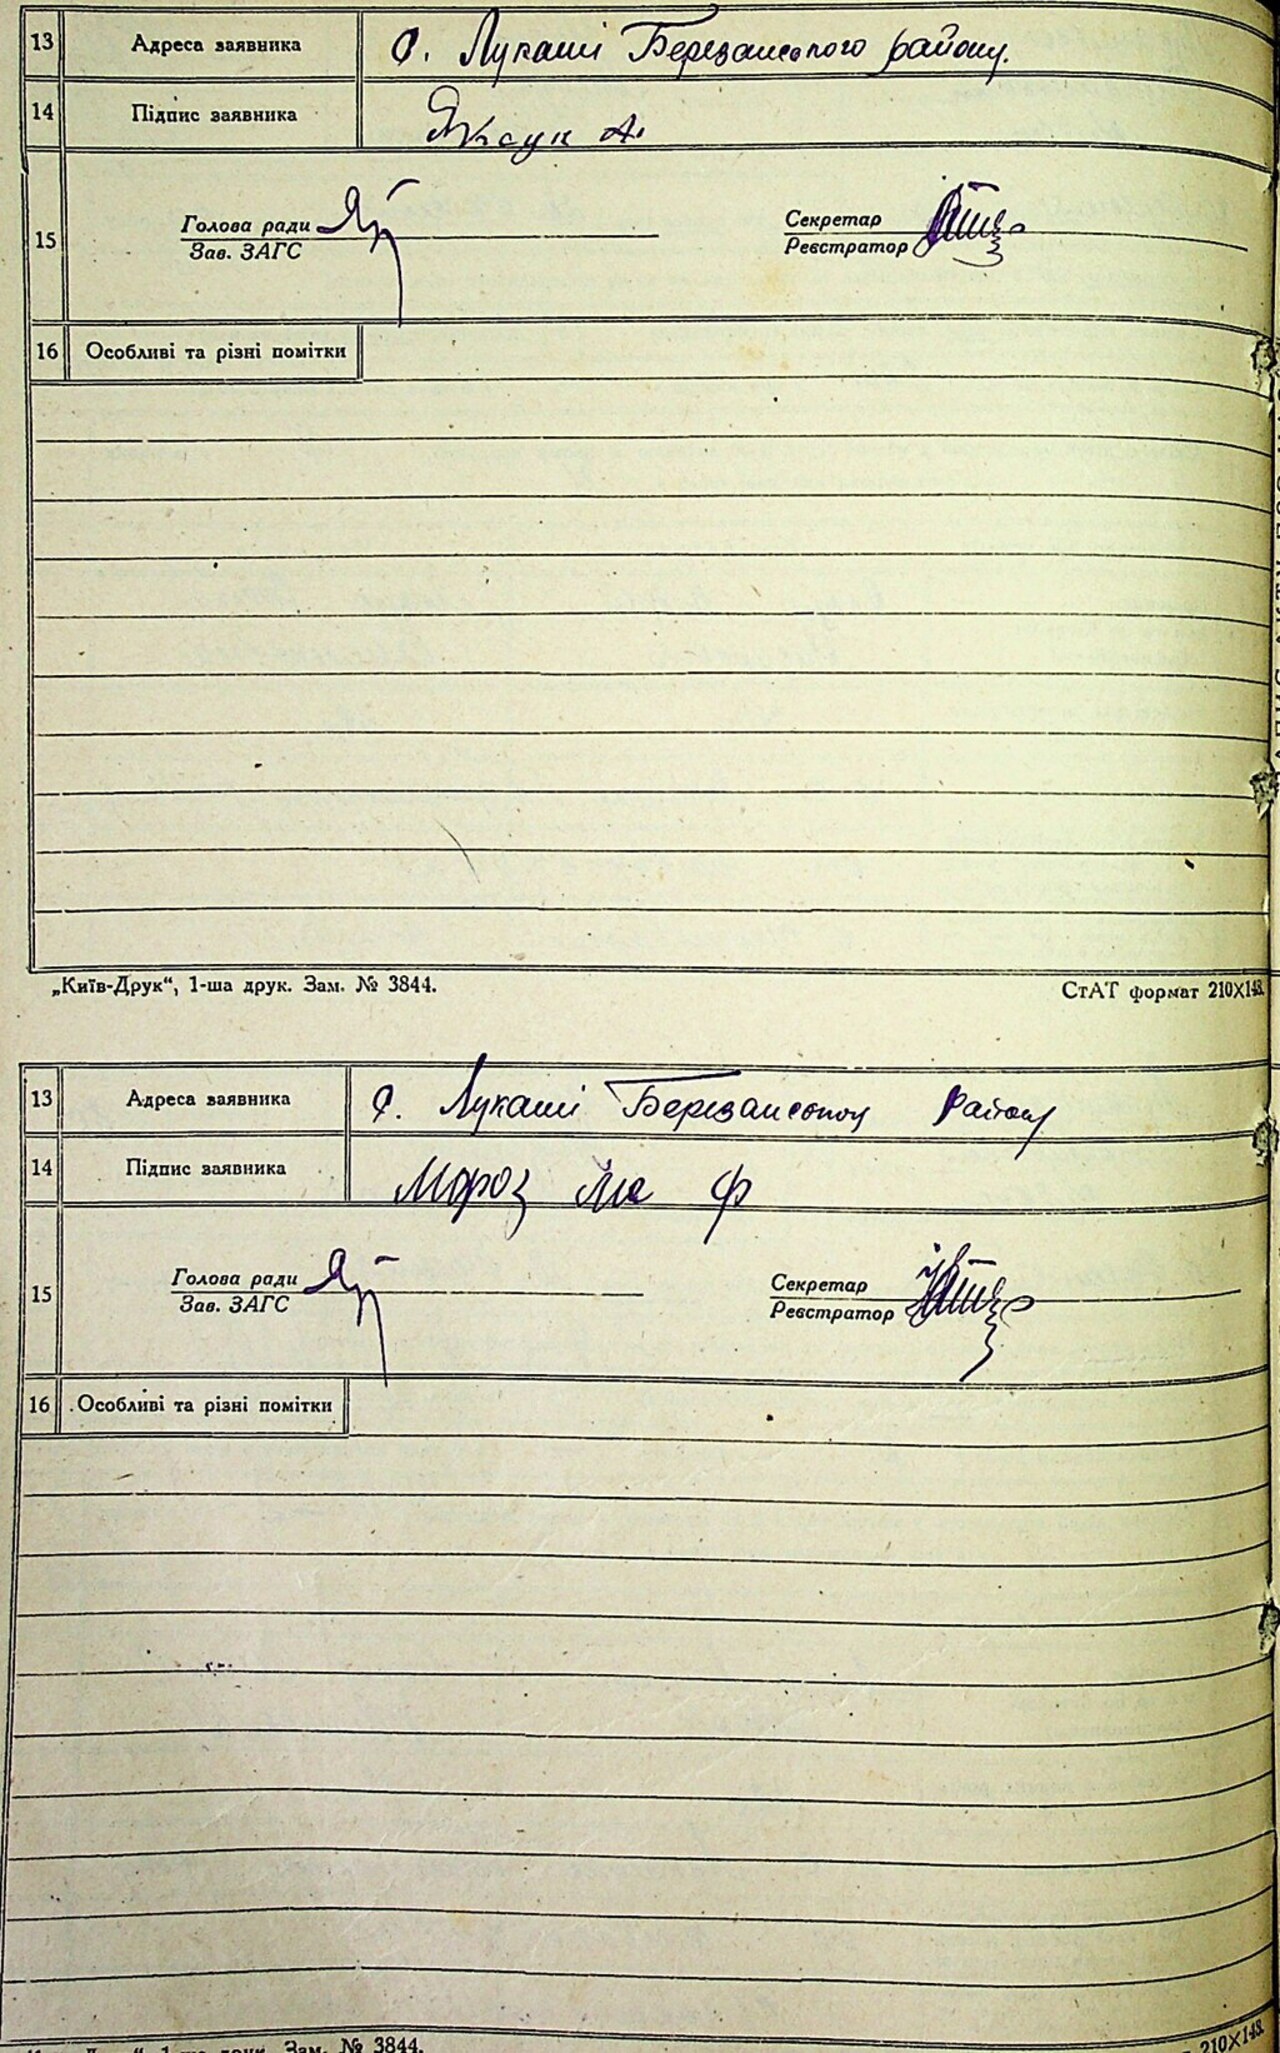 13 Адреса заявника с. Лукаші Березанського району.
14 Підпис заявника Яксун А.
15 Голова ради
Зав. ЗАГС
Секретар
Реєстратор
16 Особливі та різні помітки
„Київ-Друк“, 1-ша друк. Зам. № 3844. СтАТ формат 210X148.
13 Адреса заявника с. Лукаші Березанського району
14 Підпис заявника Мороз Ф
15 Голова ради
Зав. ЗАГС
Секретар
Реєстратор
16 Особливі та різні помітки
1-ша друк. Зам. № 3844. 210X148.